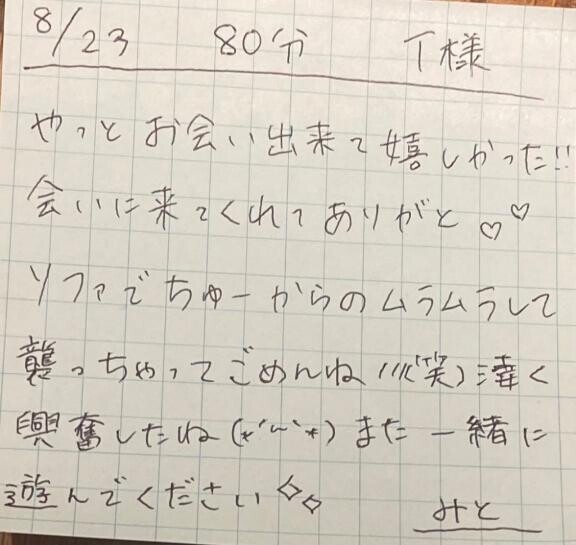 8/23 80分 T様
やっとお会い出来て嬉しかった!!
会いに来てくれてありがと♡♡
ソファでちゅーからのムラムラして
襲っちゃってごめんね///(笑)凄く
興奮したね(*´〰`*)また一緒に
遊んでください✧✧
みと